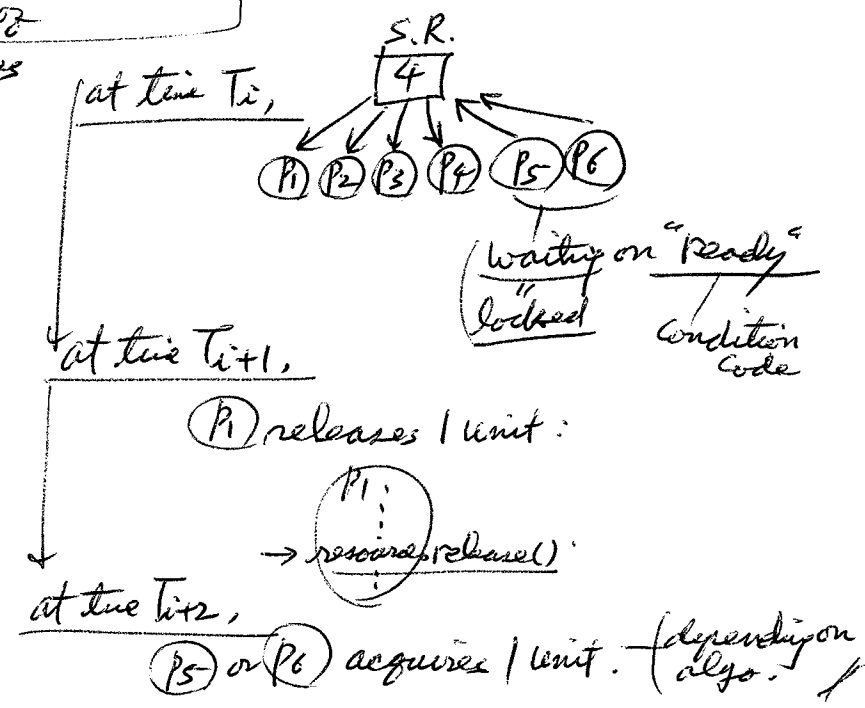 S.R.
4
at time Ti,
P1 P2 P3 P4 P5 P6
waiting on "Ready"
"
locked
condition
code
at time Ti+1,
P1 releases 1 unit:
P1
→ resource.release()
at time Ti+2,
P5 or P6 acquires 1 unit. (depending on
algo.